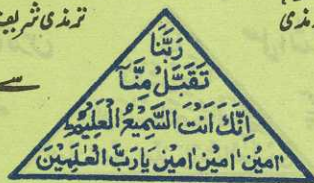 ترمذی شریف
رَبَّنَا
تَقَبَّلْ مِنَّا
اِنَّكَ اَنْتَ السَّمِيْعُ الْعَلِيْمُ
اٰمِيْن اٰمِيْن اٰمِيْن يَارَبَّ الْعٰلَمِيْنَ